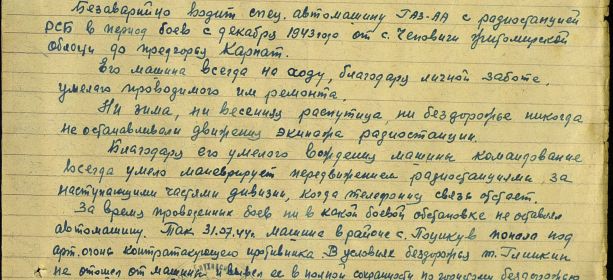 Безаварийно водит спец. автомашину ГАЗ-АА с радиостанцией
РСБ в период боев с декабря 1943 года от с. Чеповичи Житомирской
области до предгорья Карпат.
Его машина всегда на ходу, благодаря личной заботе,
умелого проводимого им ремонта.
Ни зима, ни весенняя распутица, ни бездорожье никогда
не останавливали движения экипажа радиостанции.
Благодаря его умелого вождения машины командование
всегда умело маневрирует передвижением радиостанциями, за
наступающими частями дивизии, когда телефонная связь отстает.
За время проведенных боев ни в какой боевой обстановке не оставлял
автомашину. Так 31.07.44г. машина в районе с. попала под
арт. огонь контратакующего противника. В условиях бездорожья т. Глишкин
не отошел от машины и вывел ее в полной сохранности по бездорожью